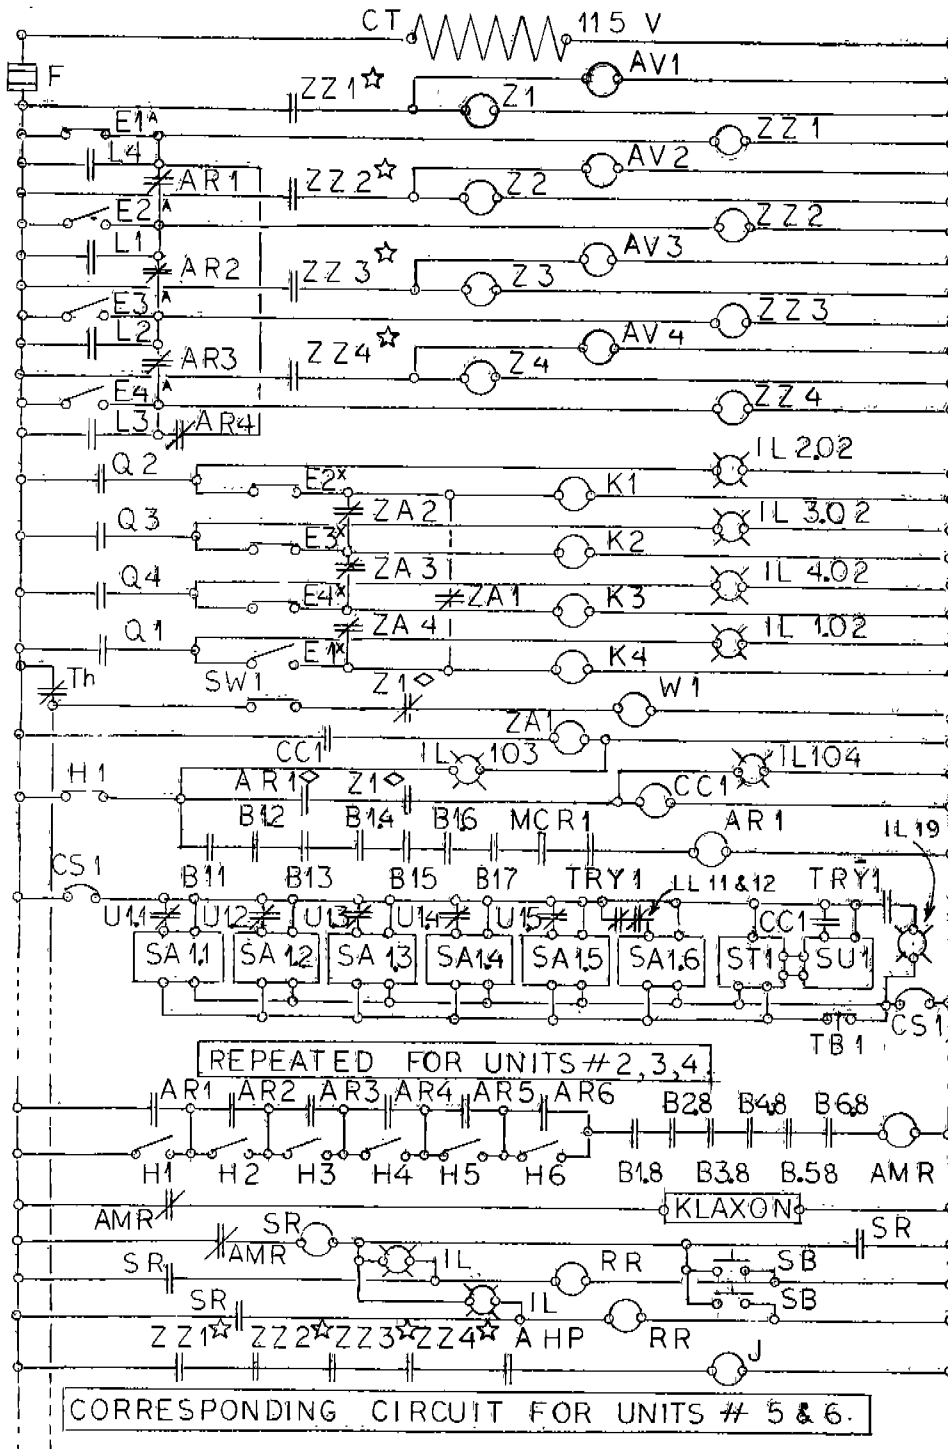 CT 115 V
F ZZ1☆ AV1
Z1
E1ᴬ ZZ1
L4 AV2
AR1 ZZ2☆ Z2
E2ᴬ ZZ2
L1 AV3
AR2 ZZ3☆ Z3
E3ᴬ ZZ3
L2 AV4
AR3 ZZ4☆ Z4
E4ᴬ ZZ4
L3 AR4
Q2 E2ˣ IL 2.02
K1
ZA2
Q3 E3ˣ IL 3.02
K2
ZA3
Q4 E4ˣ ZA1 IL 4.02
K3
ZA4
Q1 E1ˣ IL 1.02
K4
Th SW1 Z1◇ W1
ZA1
CC1 IL 103 IL104
H1 AR1◇ Z1◇ CC1
B12 B14 B16 MCR1 AR1 IL19
CS1 B11 B13 B15 B17 TRY1 LL11&12 TRY1
U1.1 U12 U1.3 U1.4 U1.5 CC1
SA1.1 SA1.2 SA1.3 SA1.4 SA1.5 SA1.6 ST1 SU1
TB1 CS1
REPEATED FOR UNITS #2,3,4.
AR1 AR2 AR3 AR4 AR5 AR6
B2.8 B4.8 B6.8
H1 H2 H3 H4 H5 H6 B1.8 B3.8 B.58 AMR
AMR KLAXON
AMR SR SR
SR IL RR SB
SR IL SB
AHP RR
ZZ1☆ ZZ2☆ ZZ3☆ ZZ4☆ J
CORRESPONDING CIRCUIT FOR UNITS # 5 & 6.